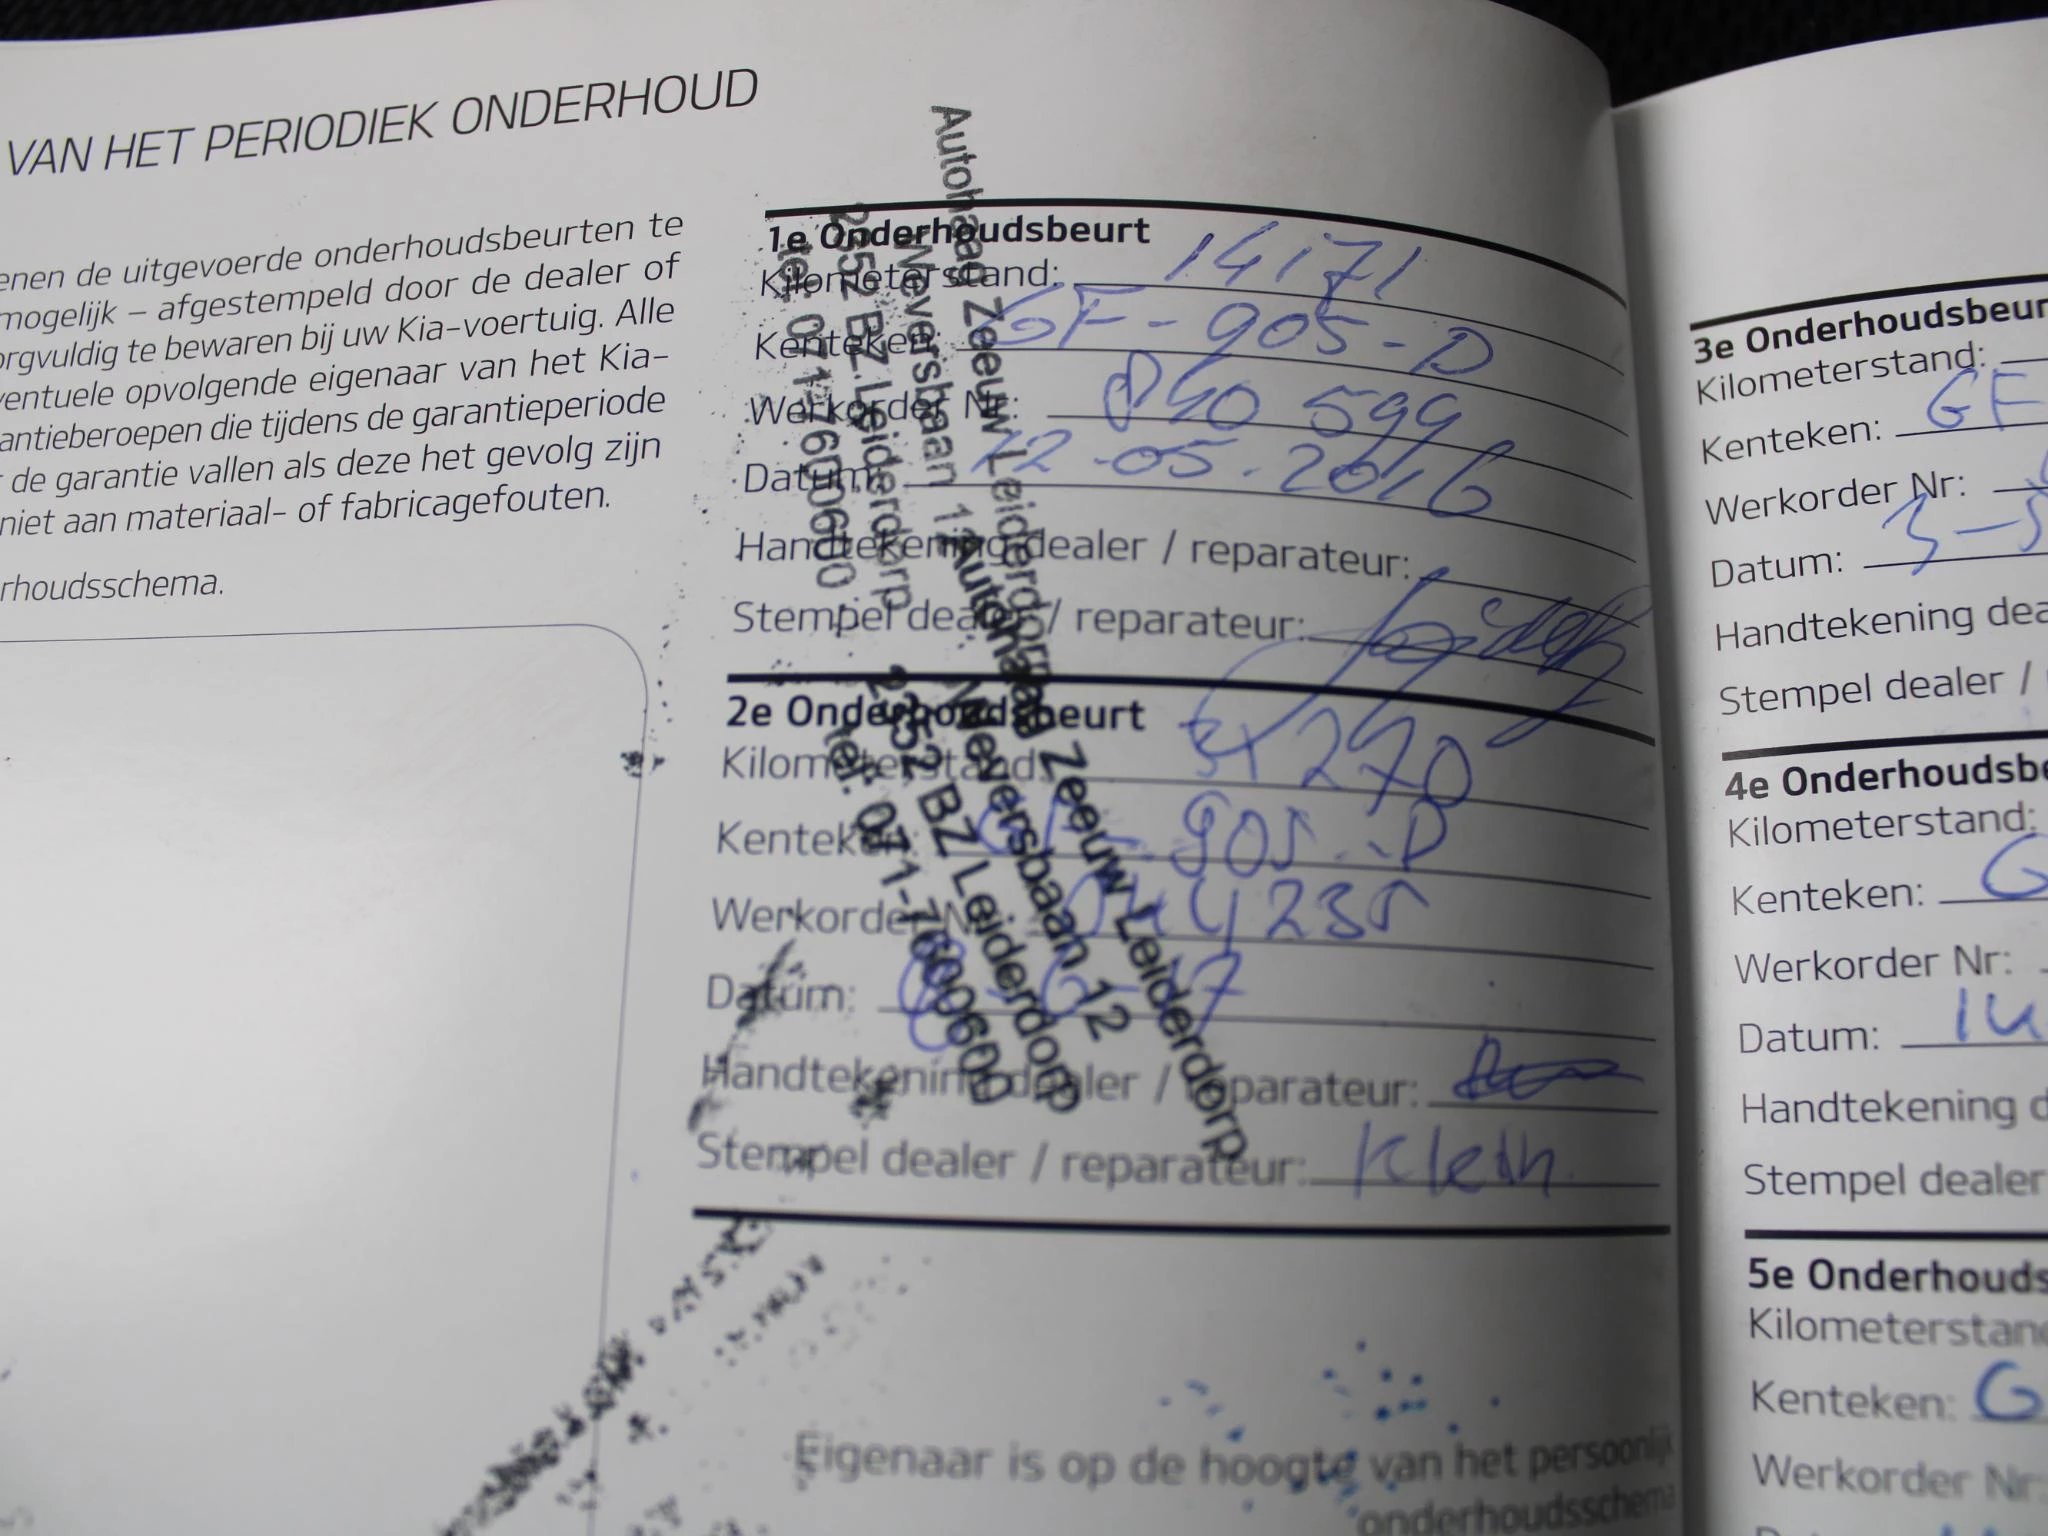 VAN HET PERIODIEK ONDERHOUD
enen de uitgevoerde onderhoudsbeurten te
mogelijk – afgestempeld door de dealer of
orgvuldig te bewaren bij uw Kia-voertuig. Alle
ventuele opvolgende eigenaar van het Kia-
antieberoepen die tijdens de garantieperiode
r de garantie vallen als deze het gevolg zijn
niet aan materiaal- of fabricagefouten.
rhoudsschema.
1e Onderhoudsbeurt
Kilometerstand: 14171
Kenteken: GF-905-D
Werkorder Nr: 840599
Datum: 12-05-2016
Handtekening dealer / reparateur:
Stempel dealer / reparateur:
Autohaag Zeeuw Leiderdorp
Weversbaan 12
2352 BZ Leiderdorp
tel: 071-7600600
2e Onderhoudsbeurt
Kilometerstand: 31270
Kenteken: GF-905-D
Werkorder Nr: 044235
Datum: 8-6-17
Handtekening dealer / reparateur:
Stempel dealer / reparateur: Klein
Autohaag Zeeuw Leiderdorp
Weversbaan 12
2352 BZ Leiderdorp
tel: 071-7600600
Eigenaar is op de hoogte van het persoonlijk
onderhoudsschema
3e Onderhoudsbeur
Kilometerstand:
Kenteken: GF
Werkorder Nr:
Datum: 3-5
Handtekening dea
Stempel dealer /
4e Onderhoudsbe
Kilometerstand:
Kenteken: G
Werkorder Nr:
Datum: 14
Handtekening d
Stempel dealer
5e Onderhouds
Kilometerstand
Kenteken: G
Werkorder Nr: